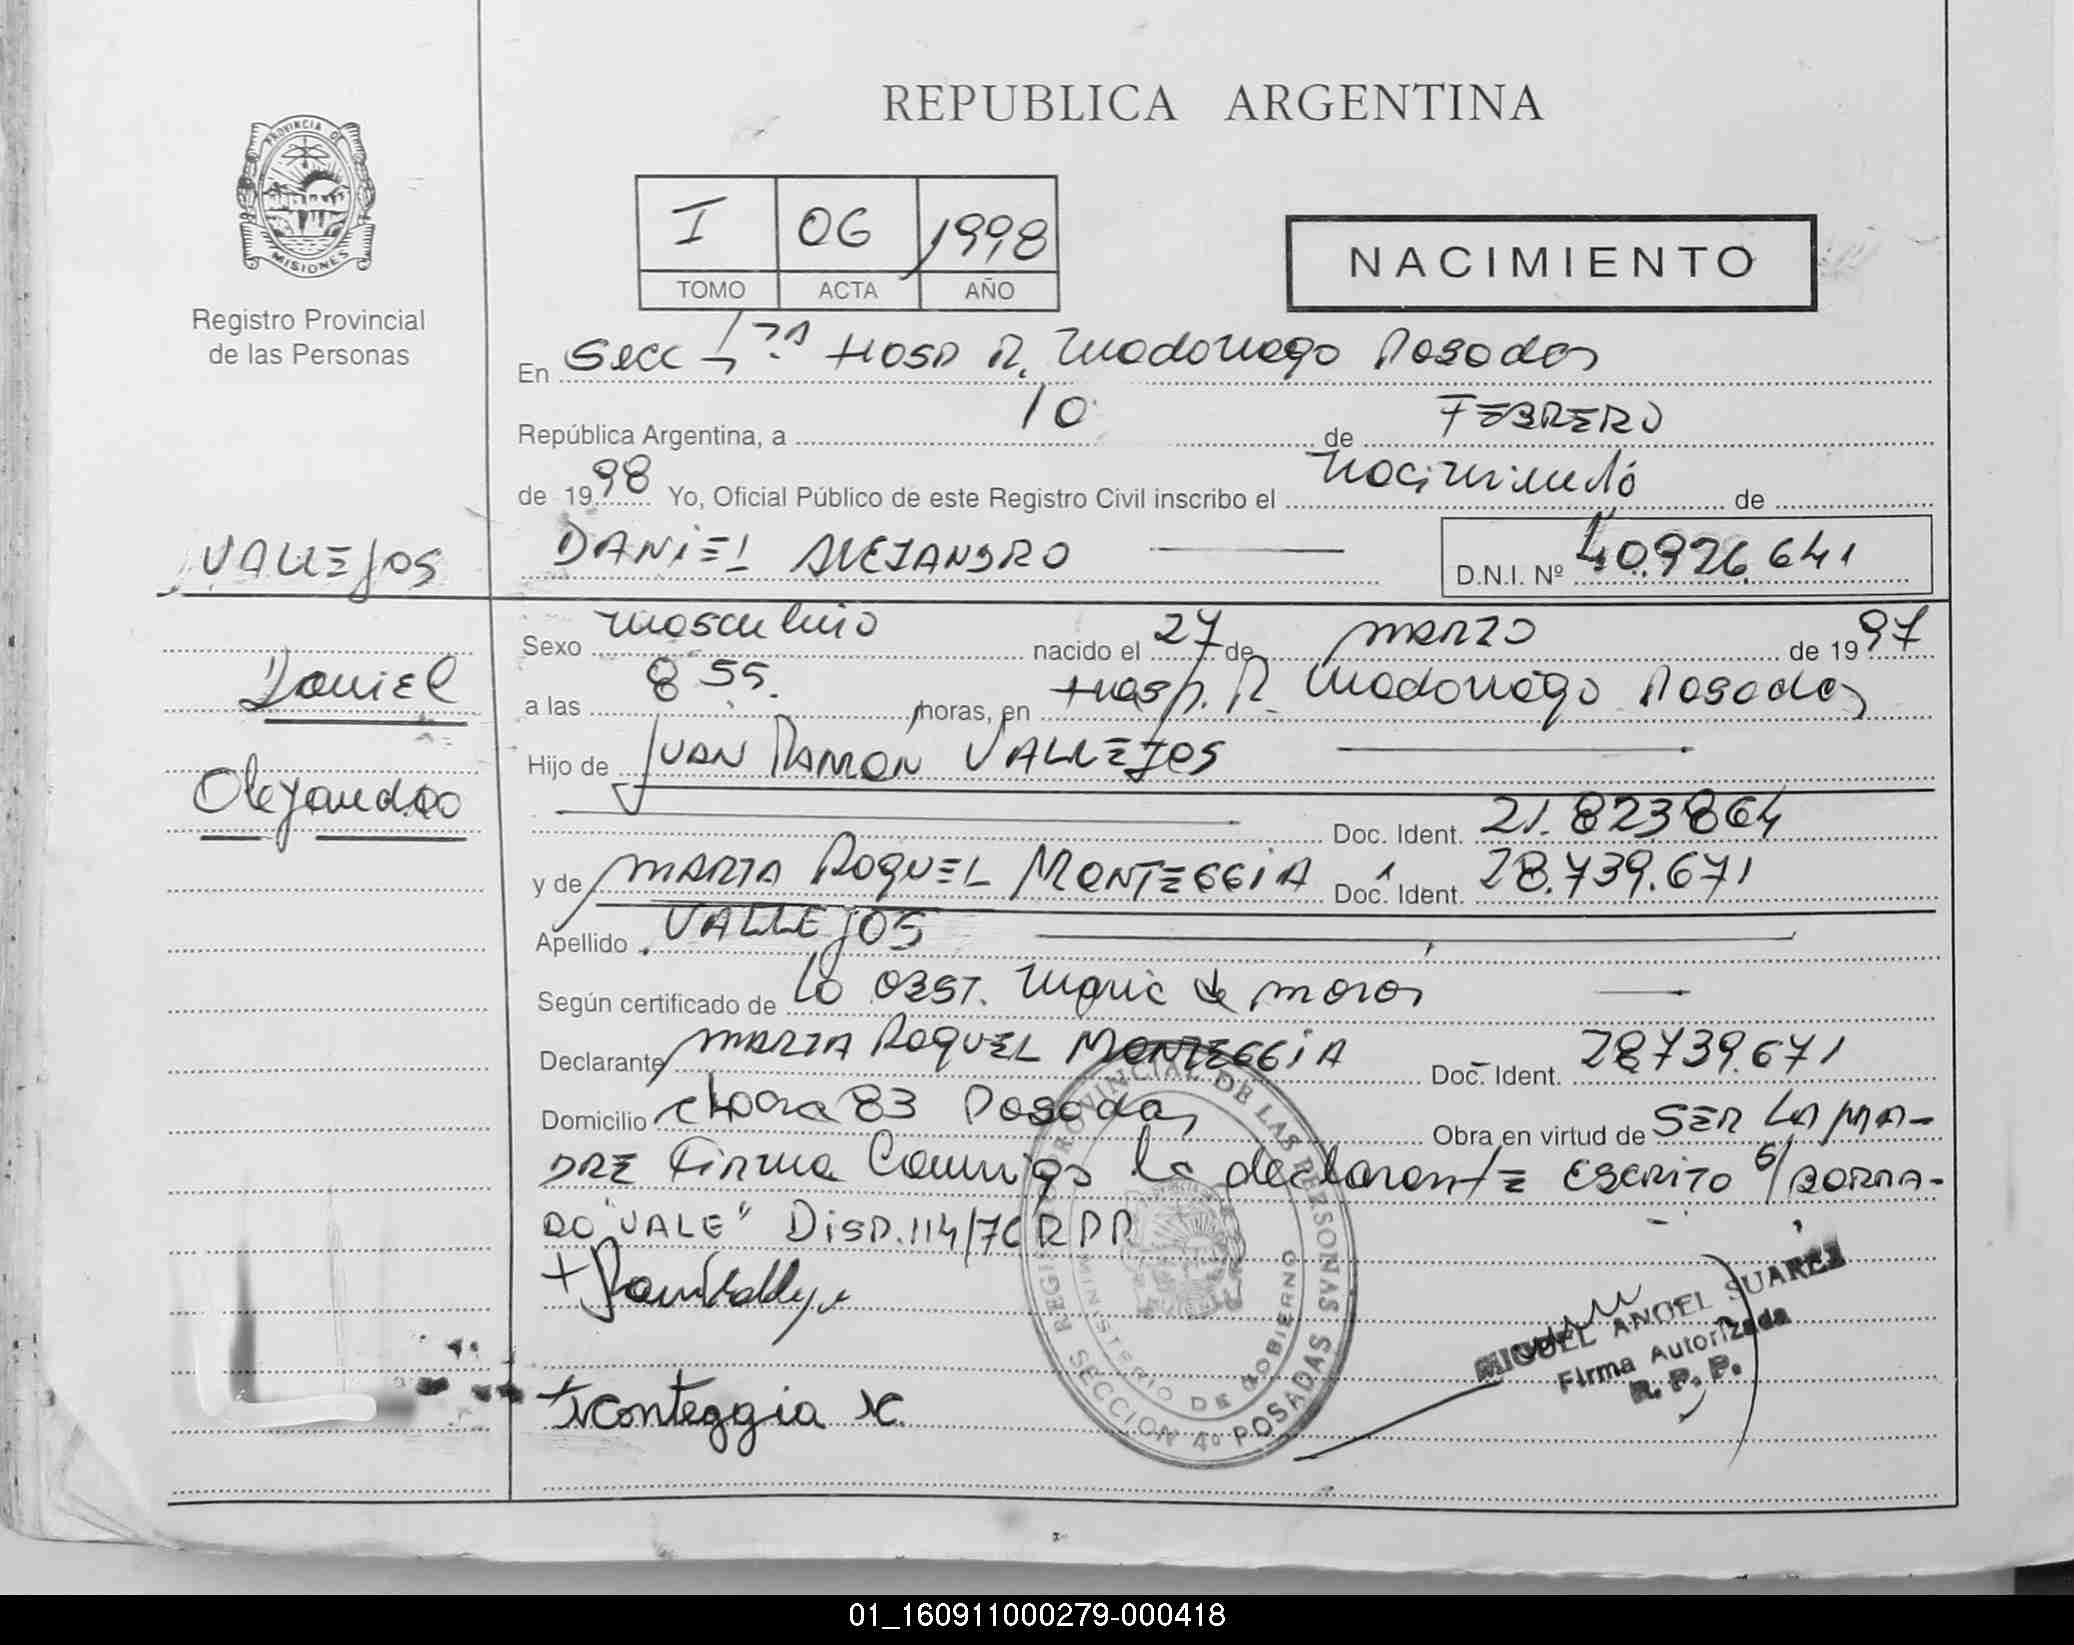 REPUBLICA ARGENTINA
PROVINCIA DE
MISIONES
Registro Provincial
de las Personas
I 06 1998
TOMO ACTA AÑO
NACIMIENTO
En Secc 4ta Hosp R. Madariaga Posadas
República Argentina, a 10 de FEBRERO
de 1998 Yo, Oficial Público de este Registro Civil inscribo el nacimiento de
VALLEJOS
DANIEL ALEJANDRO
D.N.I. Nº 40.926.641
Daniel
Alejandro
Sexo masculino nacido el 27 de MARZO de 1997
a las 8 55. horas, en Hosp. R. Madariaga Posadas
Hijo de JUAN RAMON VALLEJOS
Doc. Ident. 21.823864
y de MARTA RAQUEL MONTEGGIA Doc. Ident. 28.739.671
Apellido VALLEJOS
Según certificado de la OBST. Maria de
Declarante MARTA RAQUEL MONTEGGIA Doc. Ident. 28739.671
Domicilio chacra 83 Posadas Obra en virtud de SER LA MA-
DRE Firma Conmigo la declarante ESCRITO S/BORRA-
DO "VALE" DISP. 114/76 RPP
REGISTRO PROVINCIAL DE LAS PERSONAS
MINISTERIO DE GOBIERNO
SECCION 4º POSADAS
MIGUEL ANGEL SUAREZ
Firma Autorizada
R. P. P.
Monteggia
01_160911000279-000418